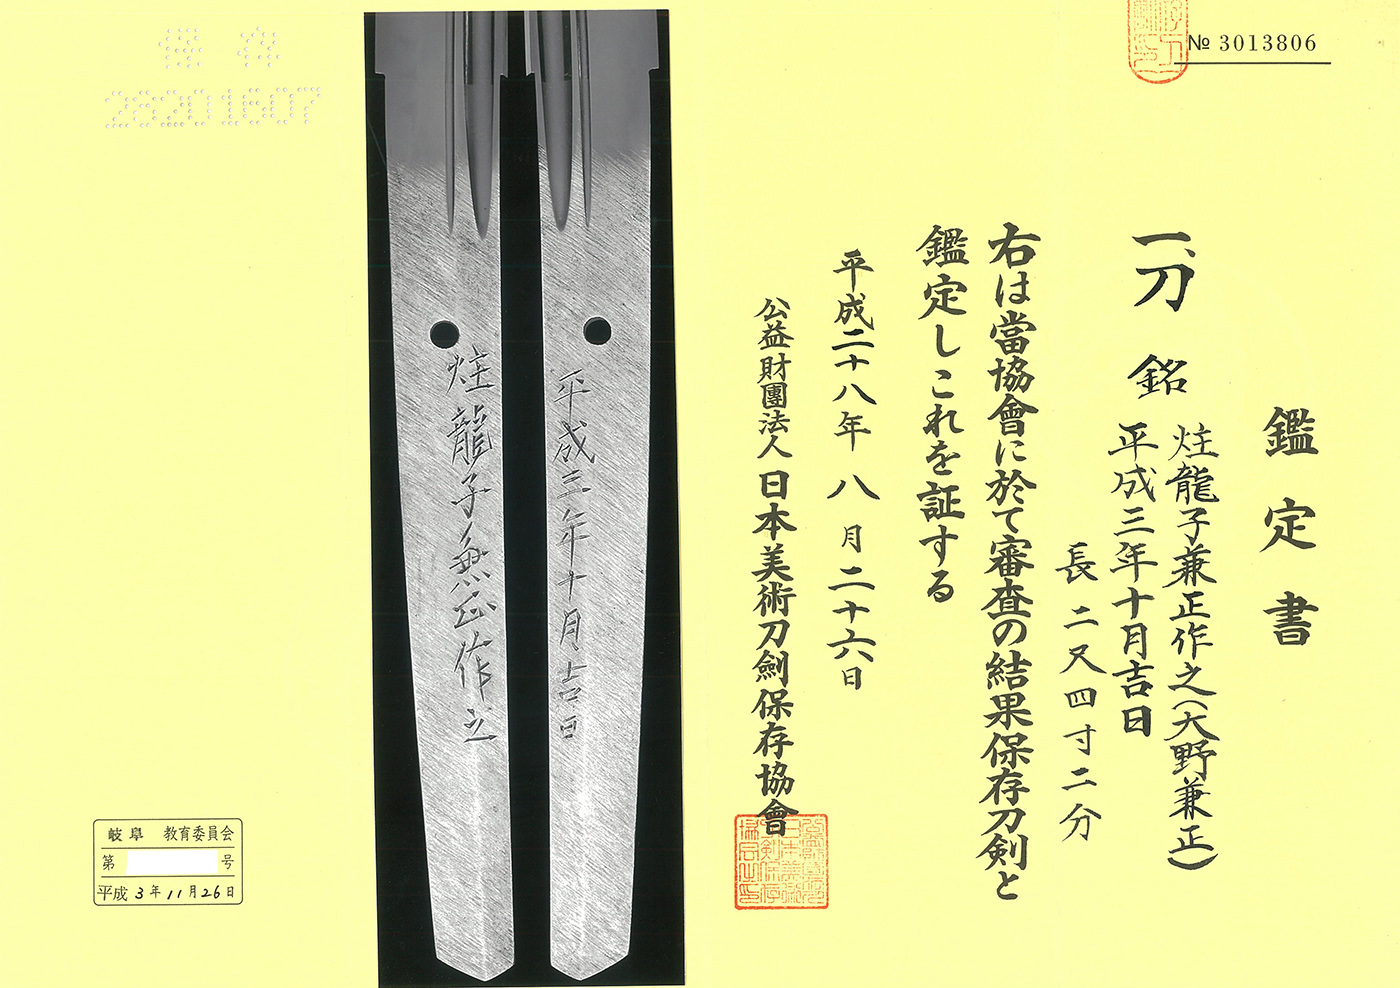 № 3013806
鑑定書
一、刀 銘
炷龍子兼正作之(大野兼正)
平成三年十月吉日
長 二尺四寸二分
右は當協會に於て審査の結果保存刀剣と
鑑定しこれを証する
平成二十八年 八月二十六日
公益財團法人 日本美術刀劍保存協會
平成三年十月吉日
炷龍子兼正作之
保存
28201607
岐阜 教育委員会
第 号
平成 3年 11月 26日